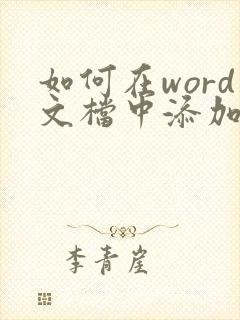 如何在word
文檔中添加
李青崖